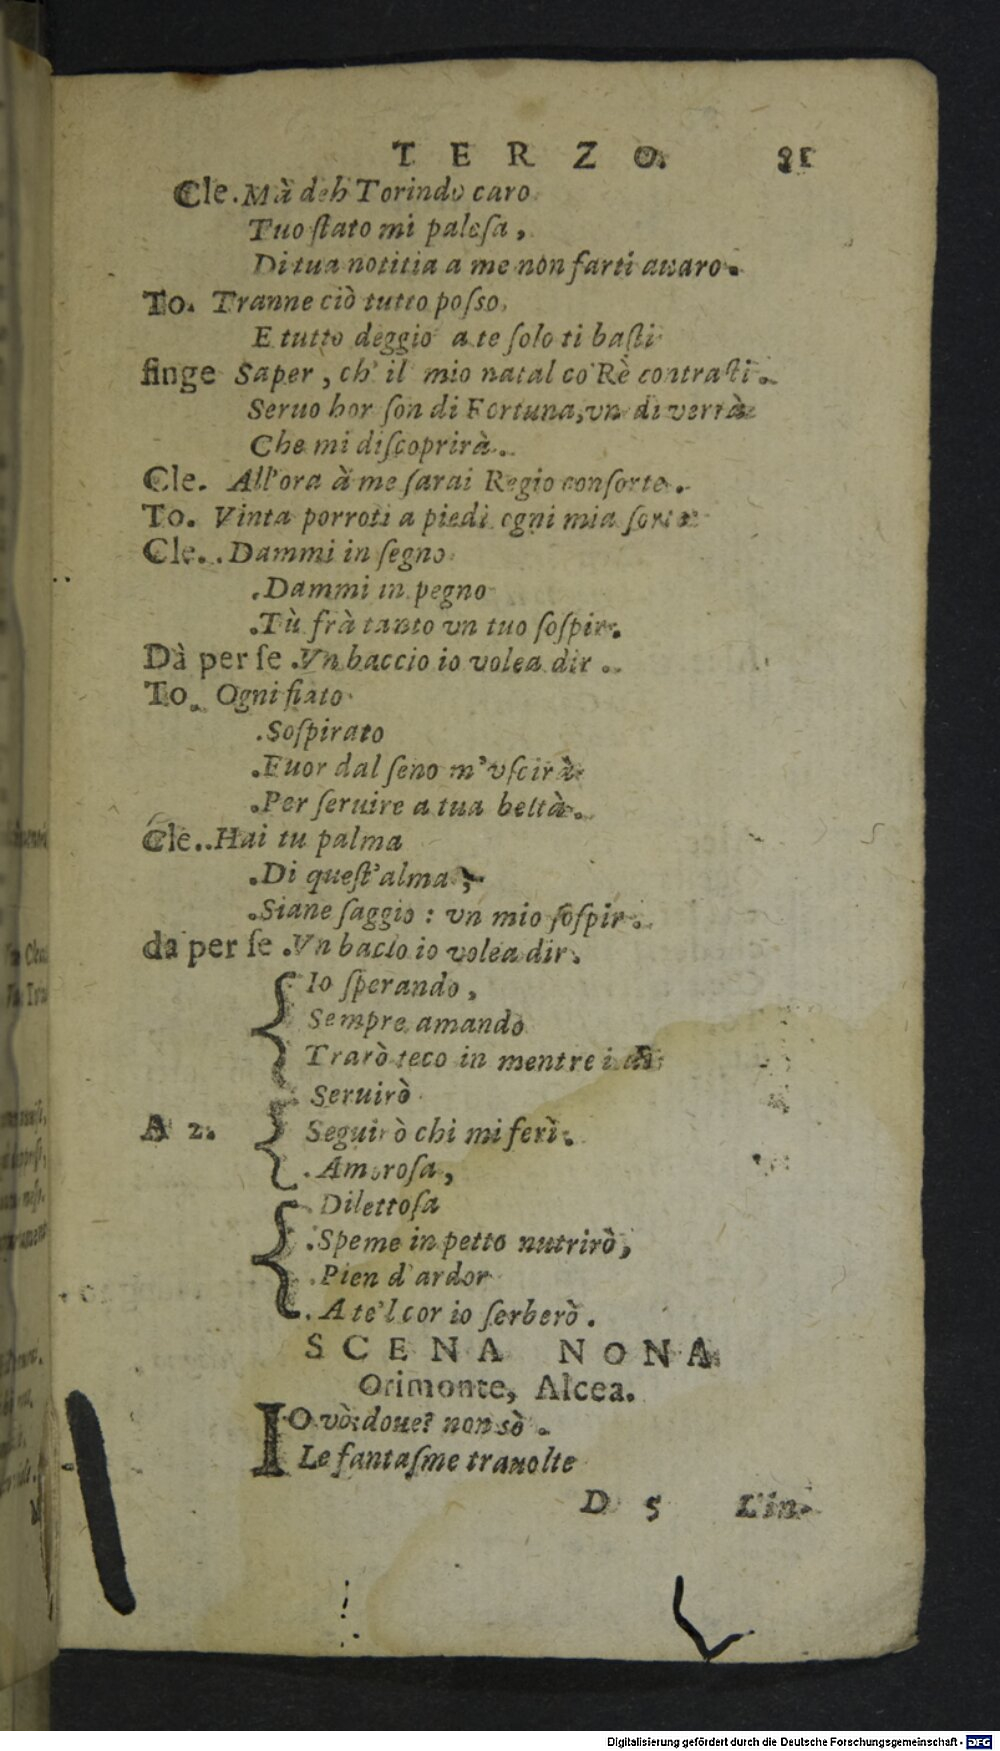 TERZO. 81
Cle. Mà deh Torindo caro
Tuo ſtato mi paleſa,
Di tua notitia a me non farti auaro.
To. Tranne ciò tutto poſſo,
E tutto deggio a te ſolo ti baſti
finge Saper, ch' il mio natal co'Rè contraſti.
Seruo hor ſon di Fortuna, vn dì verrà
Che mi diſcoprirà.
Cle. All'ora à me ſarai Regio conſorte.
To. Vinta porroti a piedi ogni mia ſorte
Cle. Dammi in ſegno
Dammi in pegno
Tù frà tanto vn tuo ſoſpir.
Dà per ſe Vn baccio io volea dir.
To. Ogni fiato
Soſpirato
Fuor dal ſeno m'vſcirà
Per ſeruire a tua beltà.
Cle. Hai tu palma
Di queſt'alma,
Siane ſaggio: vn mio ſoſpir.
da per ſe Vn bacio io volea dir.
Io ſperando,
Sempre amando
Trarò teco in mentre i dì
Seruirò
A 2. Seguirò chi mi ferì.
Amoroſa,
Dilettoſa
Speme in petto nutrirò,
Pien d'ardor
A te'l cor io ſerberò.
SCENA NONA
Orimonte, Alcea.
IO vò: doue? non sò.
Le fantaſme trauolte
D 5 L'in-
Digitalisierung gefördert durch die Deutsche Forschungsgemeinschaft - DFG